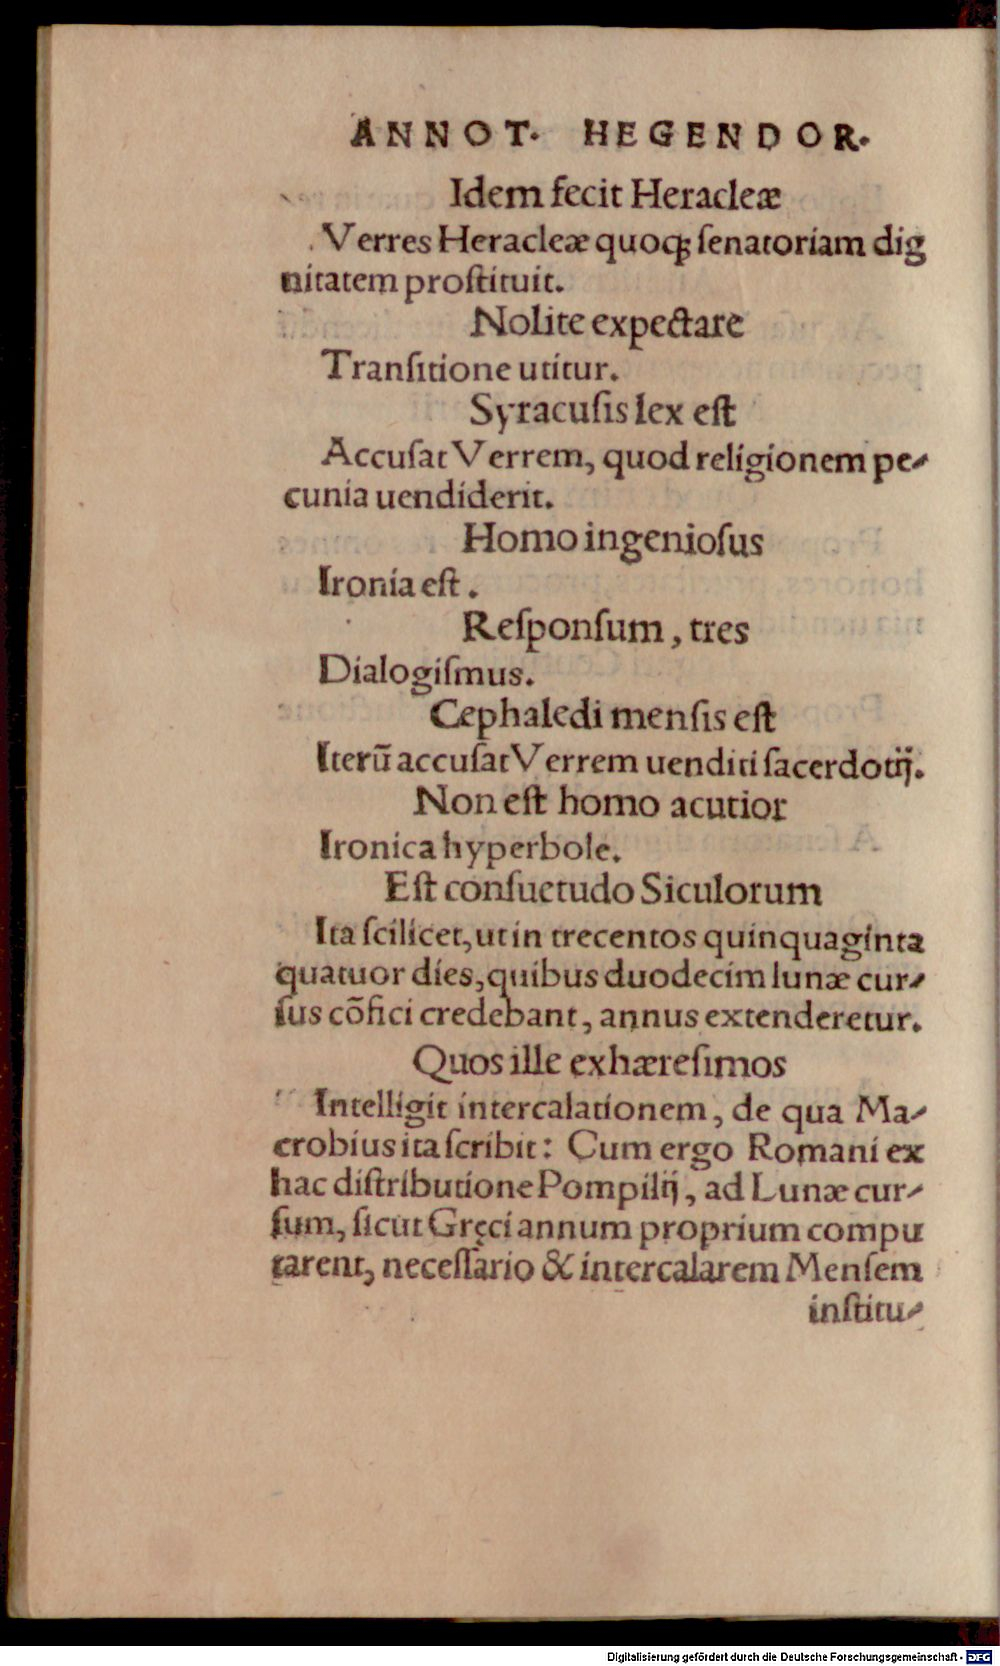 ANNOT. HEGENDOR.
Idem fecit Heracleæ
Verres Heracleæ quoqꝫ ſenatoriam dig
nitatem proſtituit.
Nolite expectare
Tranſitione utitur.
Syracuſis lex eſt
Accuſat Verrem, quod religionem pe-
cunia uendiderit.
Homo ingenioſus
Ironia eſt.
Reſponſum, tres
Dialogiſmus.
Cephaledi menſis eſt
Iterū accuſat Verrem uenditi ſacerdotĳ.
Non eſt homo acutior
Ironica hyperbole.
Eſt conſuetudo Siculorum
Ita ſcilicet, ut in trecentos quinquaginta
quatuor dies, quibus duodecim lunæ cur-
ſus cōfici credebant, annus extenderetur.
Quos ille exhæreſimos
Intelligit intercalationem, de qua Ma-
crobius ita ſcribit: Cum ergo Romani ex
hac diſtributione Pompilĳ, ad Lunæ cur-
ſum, ſicut Gręci annum proprium compu
tarent, neceſſario & intercalarem Menſem
inſtitu-
Digitalisierung gefördert durch die Deutsche Forschungsgemeinschaft - DFG